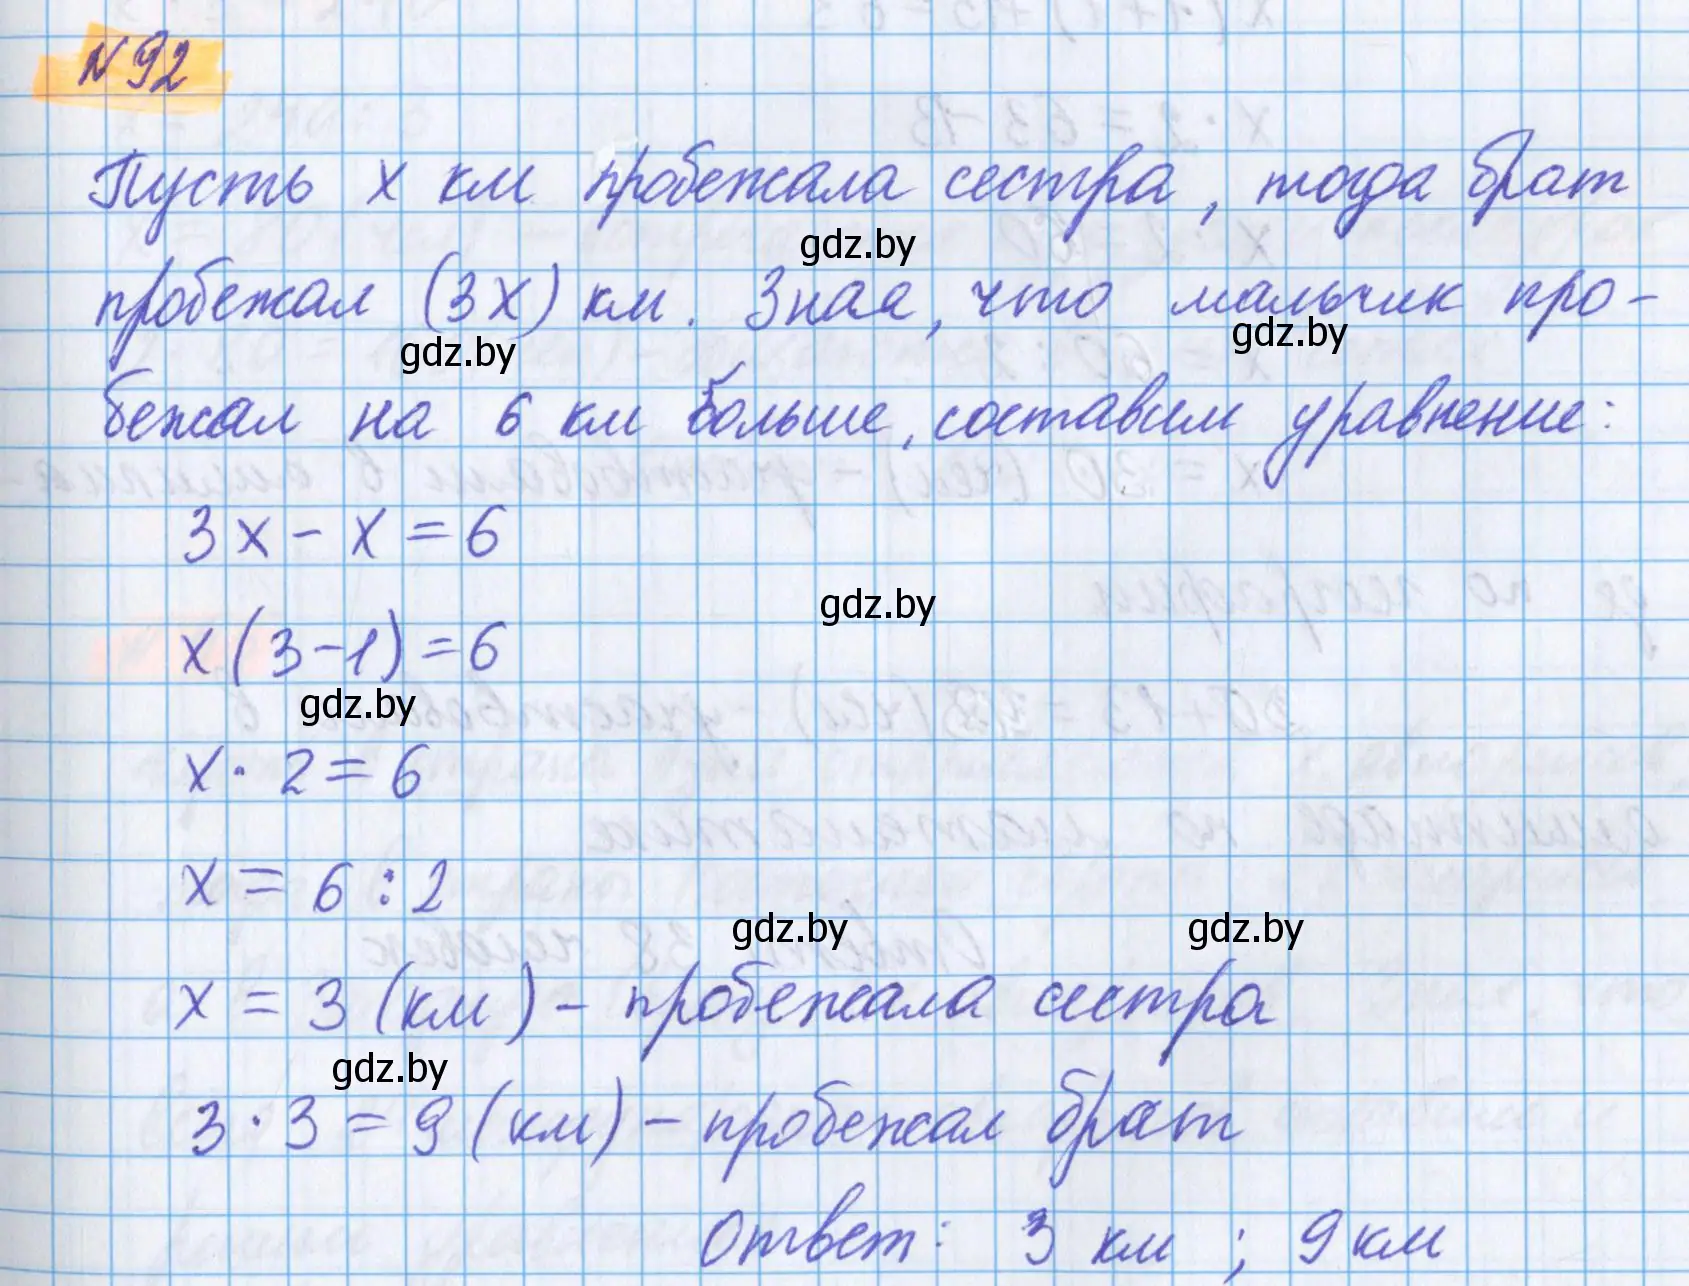 N 92
Пусть x км пробежала сестра, тогда брат
gdz.by
пробежал (3x) км. Зная, что мальчик про-
gdz.by gdz.by
бежал на 6 км больше, составим уравнение:
3x - x = 6
gdz.by
x(3-1) = 6
gdz.by
x · 2 = 6
x = 6 : 2
gdz.by gdz.by
x = 3 (км) - пробежала сестра
gdz.by
3 · 3 = 9 (км) - пробежал брат
Ответ: 3 км ; 9 км